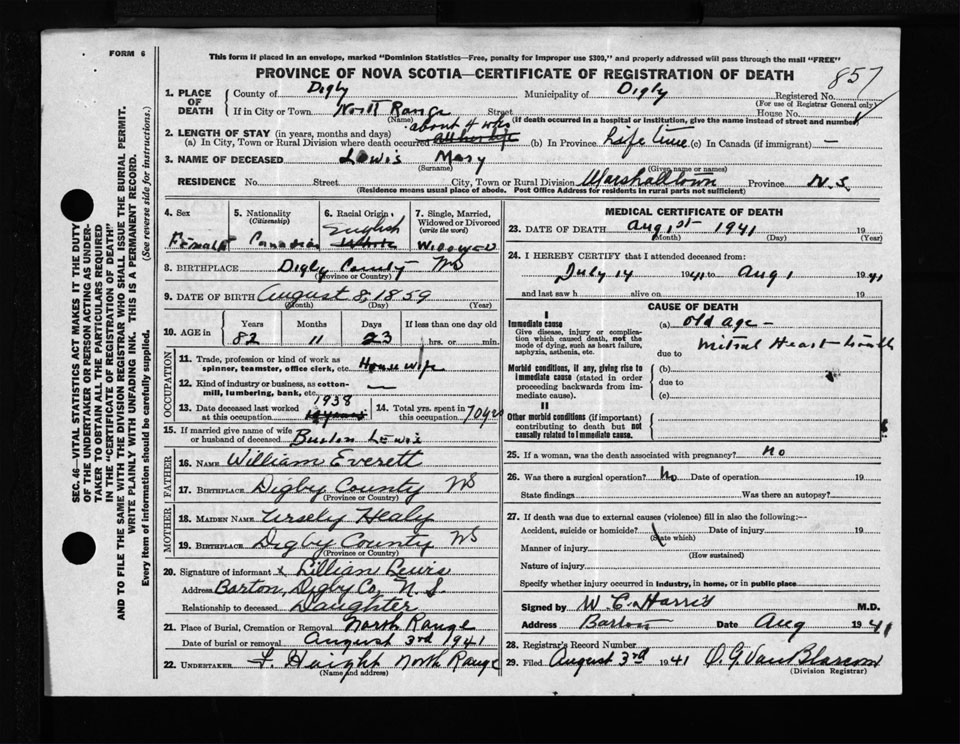 FORM 6
This form if placed in an envelope, marked "Dominion Statistics—Free, penalty for improper use $300," and properly addressed will pass through the mail "FREE"
PROVINCE OF NOVA SCOTIA—CERTIFICATE OF REGISTRATION OF DEATH
857
SEC. 46—VITAL STATISTICS ACT MAKES IT THE DUTY
OF THE UNDERTAKER OR PERSON ACTING AS UNDER-
TAKER TO OBTAIN ALL THE PARTICULARS REQUIRED
IN THE "CERTIFICATE OF REGISTRATION OF DEATH"
AND TO FILE THE SAME WITH THE DIVISION REGISTRAR WHO SHALL ISSUE THE BURIAL PERMIT.
WRITE PLAINLY WITH UNFADING INK. THIS IS A PERMANENT RECORD.
Every item of information should be carefully supplied. (See reverse side for instructions.)
1. PLACE OF DEATH County of Digby Municipality of Digby Registered No.
(For use of Registrar General only)
If in City or Town North Range Street House No.
(Name) (If death occurred in a hospital or institution, give the name instead of street and number)
2. LENGTH OF STAY (in years, months and days) about 4 wks
(a) In City, Town or Rural Division where death occurred all her life (b) In Province Life time (c) In Canada (if immigrant) —
3. NAME OF DECEASED Lewis Mary
(Surname) (Given name or names)
RESIDENCE No. Street City, Town or Rural Division Marshalltown Province N.S
(Residence means usual place of abode. Post Office Address for residents in rural parts not sufficient)
4. Sex 5. Nationality (Citizenship) 6. Racial Origin 7. Single, Married, Widowed or Divorced (write the word)
Female Canadian English White Widowed
8. BIRTHPLACE Digby County NS
(Province or Country)
9. DATE OF BIRTH August 8, 1859
(Month) (Day) (Year)
10. AGE in Years Months Days If less than one day old
82 11 23 hrs. or min.
OCCUPATION
11. Trade, profession or kind of work as spinner, teamster, office clerk, etc. House wife
12. Kind of industry or business, as cotton-mill, lumbering, bank, etc. —
13. Date deceased last worked at this occupation 1938
14. Total yrs. spent in this occupation 70 yrs
15. If married give name of wife or husband of deceased Lewis
FATHER
16. NAME William Everett
17. BIRTHPLACE Digby County NS
(Province or Country)
MOTHER
18. MAIDEN NAME Ursely Healy
19. BIRTHPLACE Digby County NS
(Province or Country)
20. Signature of informant x Lillian Lewis
Address Barton, Digby Co, N.S.
Relationship to deceased Daughter
21. Place of Burial, Cremation or Removal North Range
Date of burial or removal August 3rd 1941
22. UNDERTAKER F. Haight North Range
(Name and address)
MEDICAL CERTIFICATE OF DEATH
23. DATE OF DEATH Aug 1st 1941 19
(Month) (Day)
24. I HEREBY CERTIFY that I attended deceased from:
July 14 1941 to Aug 1 1941
and last saw h alive on 19
CAUSE OF DEATH
I
Immediate cause
Give disease, injury or complication which caused death, not the mode of dying, such as heart failure, asphyxia, asthenia, etc.
(a) Old age —
due to Mitral Heart
Morbid conditions, if any, giving rise to immediate cause (stated in order proceeding backwards from immediate cause).
(b)
due to
(c)
II
Other morbid conditions (if important) contributing to death but not causally related to immediate cause.
25. If a woman, was the death associated with pregnancy? no
26. Was there a surgical operation? No Date of operation 19
State findings Was there an autopsy?
27. If death was due to external causes (violence) fill in also the following:—
Accident, suicide or homicide? Date of injury 19
(State which)
Manner of injury
(How sustained)
Nature of injury
Specify whether injury occurred in industry, in home, or in public place
Signed by W E Harris M.D.
Address Barton Date Aug 1941
28. Registrar's Record Number
29. Filed August 3rd 1941 O. G. Van Blarcom
(Division Registrar)